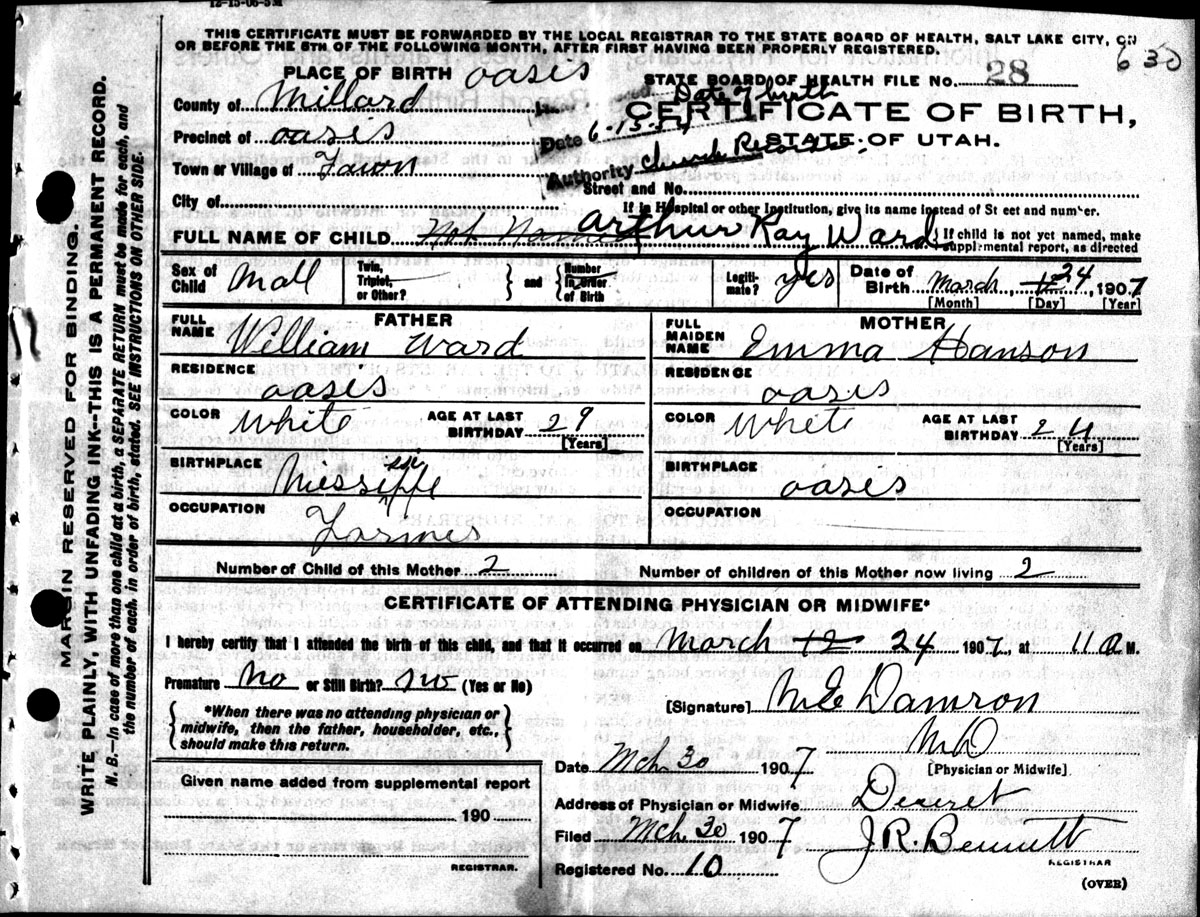 12-15-06-5M
THIS CERTIFICATE MUST BE FORWARDED BY THE LOCAL REGISTRAR TO THE STATE BOARD OF HEALTH, SALT LAKE CITY, ON
OR BEFORE THE 5TH OF THE FOLLOWING MONTH, AFTER FIRST HAVING BEEN PROPERLY REGISTERED.
630
PLACE OF BIRTH oasis
STATE BOARD OF HEALTH FILE No. 28
County of Millard
Date of birth
CERTIFICATE OF BIRTH,
Precinct of oasis
Date 6-15-
STATE OF UTAH.
Town or Village of Town
Authority church Records
Street and No.
City of
If in Hospital or other Institution, give its name instead of St eet and number.
FULL NAME OF CHILD Not Named Arthur Ray Ward
If child is not yet named, make supplemental report, as directed
Sex of Child Mall
Twin, Triplet, or Other? and Number in Order of Birth
Legitimate? yes
Date of Birth March 12 24, 1907
[Month] [Day] [Year]
FATHER
FULL NAME William Ward
RESIDENCE oasis
COLOR White AGE AT LAST BIRTHDAY 29 [Years]
BIRTHPLACE Miessippe ssi
OCCUPATION Farmer
MOTHER
FULL MAIDEN NAME Emma Hanson
RESIDENCE oasis
COLOR White AGE AT LAST BIRTHDAY 24 [Years]
BIRTHPLACE oasis
OCCUPATION
Number of Child of this Mother 2 Number of children of this Mother now living 2
CERTIFICATE OF ATTENDING PHYSICIAN OR MIDWIFE*
I hereby certify that I attended the birth of this child, and that it occurred on March 12 24 1907, at 11 a M.
Premature No or Still Birth? no (Yes or No)
*When there was no attending physician or midwife, then the father, householder, etc., should make this return.
[Signature] Damron
MD
[Physician or Midwife]
Date Mch 30 1907
Given name added from supplemental report
190
REGISTRAR.
Address of Physician or Midwife Deseret
Filed Mch 30 1907 J.R. Bennett
REGISTRAR
Registered No. 10
(OVER)
MARGIN RESERVED FOR BINDING.
WRITE PLAINLY, WITH UNFADING INK--THIS IS A PERMANENT RECORD.
N. B.--In case of more than one child at a birth, a SEPARATE RETURN must be made for each, and
the number of each, in order of birth, stated. SEE INSTRUCTIONS ON OTHER SIDE.